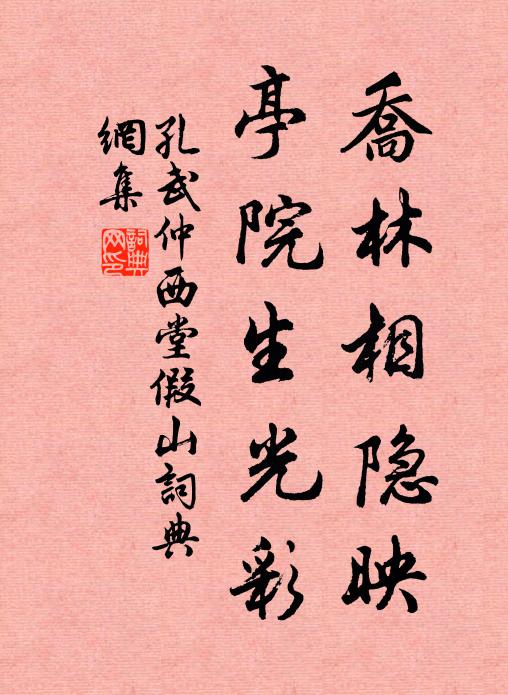 喬林相隐映
亭院生光彩
孔武仲西堂假山詞典
網集
詞典
网印